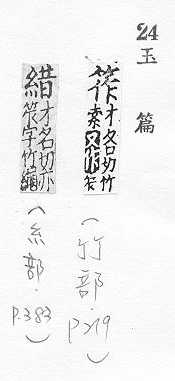 24 玉篇
筰才各切竹索又作笮
(竹部. P.219)
䊬才各切亦笮字竹繩
(糸部. P.383)